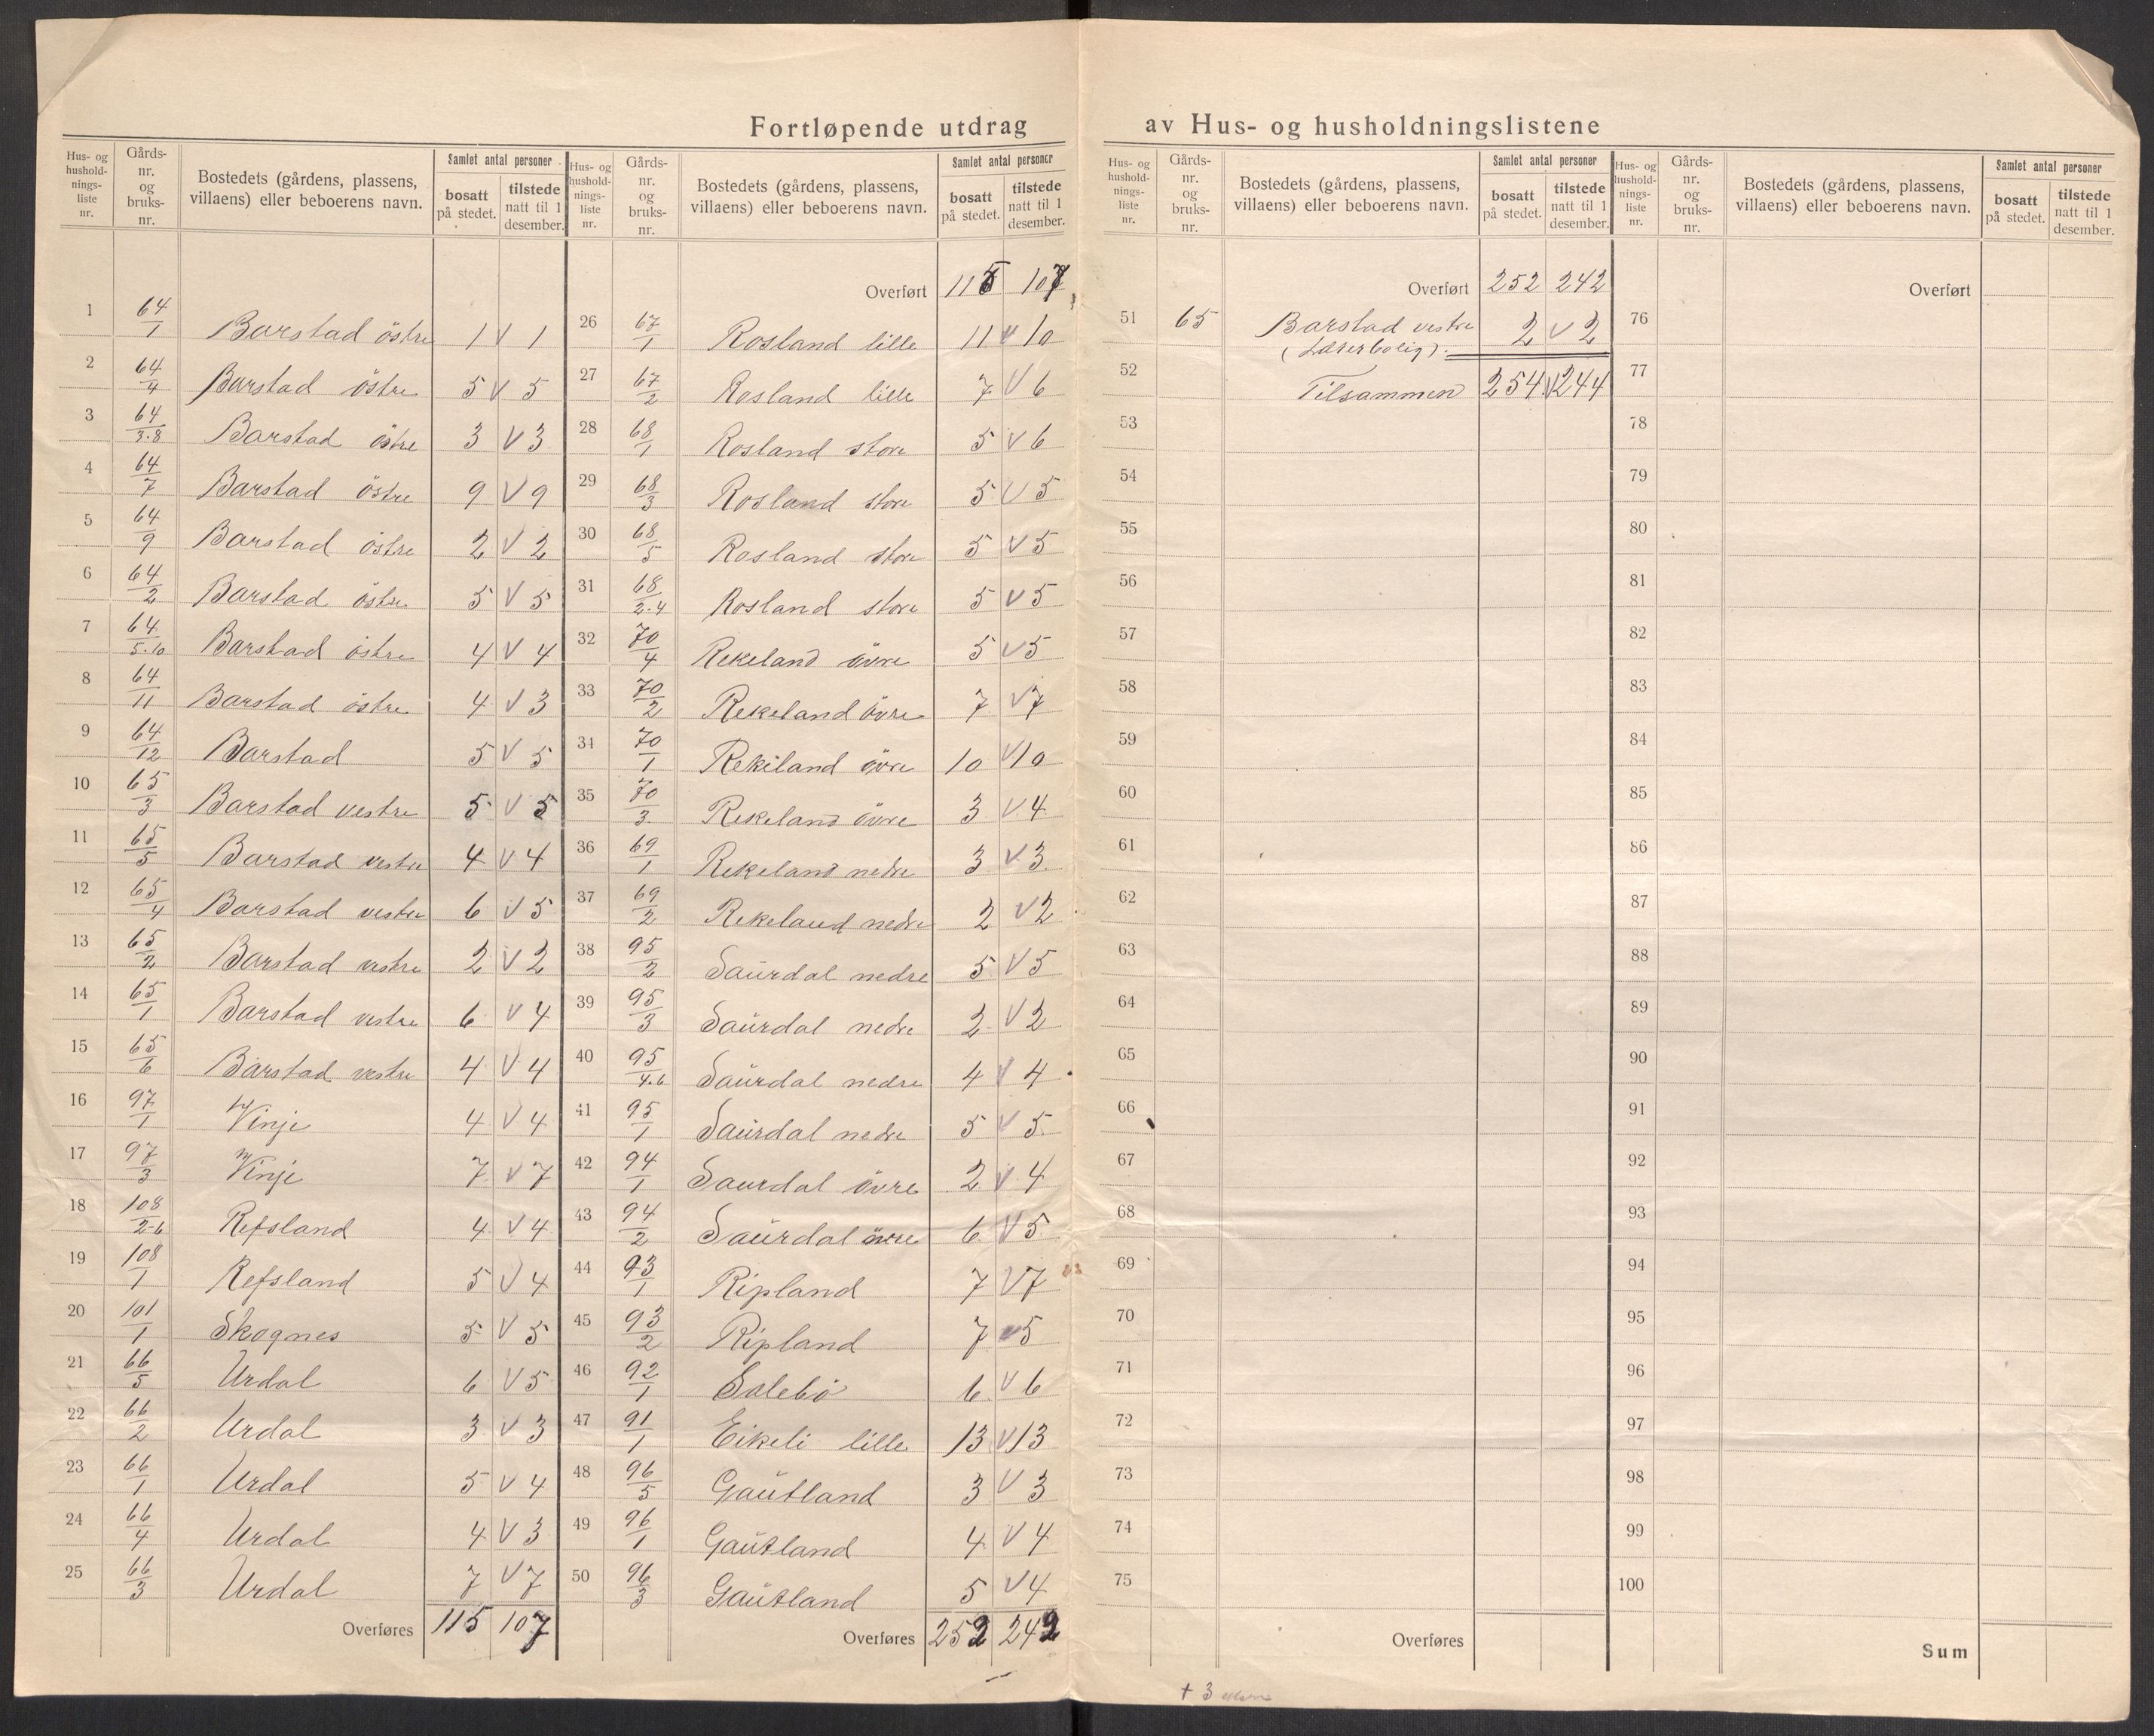 Fortløpende utdrag av Hus- og husholdningslistene
Hus- og husholdnings-liste nr. | Gårds-nr. og bruks-nr. | Bostedets (gårdens, plassens, villaens) eller beboerens navn. | Samlet antal personer bosatt på stedet. | tilstede natt til 1 desember.
1 64/1 Barstad östre 1 V 1
2 64/4 Barstad östre 5 V 5
3 64/3.8 Barstad östre 3 V 3
4 64/7 Barstad östre 9 V 9
5 64/9 Barstad östre 2 V 2
6 64/2 Barstad östre 5 V 5
7 64/5.10 Barstad östre 4 V 4
8 64/11 Barstad östre 4 V 3
9 64/12 Barstad 5 V 5
10 65/3 Barstad vestre 5 V 5
11 65/5 Barstad vestre 4 V 4
12 65/4 Barstad vestre 6 V 5
13 65/2 Barstad vestre 2 V 2
14 65/1 Barstad vestre 6 V 4
15 65/6 Barstad vestre 4 V 4
16 97/1 Vinje 4 V 4
17 97/3 Vinje 7 V 7
18 108/2-6 Refsland 4 V 4
19 108/1 Refsland 5 V 4
20 101/1 Skognes 5 V 5
21 66/5 Urdal 6 V 5
22 66/2 Urdal 3 V 3
23 66/1 Urdal 5 V 4
24 66/4 Urdal 4 V 3
25 66/3 Urdal 7 V 7
Overføres 115 107
Hus- og husholdnings-liste nr. | Gårds-nr. og bruks-nr. | Bostedets (gårdens, plassens, villaens) eller beboerens navn. | Samlet antal personer bosatt på stedet. | tilstede natt til 1 desember.
Overført 115 107
26 67/1 Rosland lille 11 V 10
27 67/2 Rosland lille 7 V 6
28 68/1 Rosland store 5 V 6
29 68/3 Rosland store 5 V 5
30 68/5 Rosland store 5 V 5
31 68/2.4 Rosland store 5 V 5
32 70/4 Rekeland övre 5 V 5
33 70/2 Rekeland övre 7 V 7
34 70/1 Rekeland övre 10 V 10
35 70/3 Rekeland övre 3 V 4
36 69/1 Rekeland nedre 3 V 3
37 69/2 Rekeland nedre 2 V 2
38 95/2 Saurdal nedre 5 V 5
39 95/3 Saurdal nedre 2 V 2
40 95/4.6 Saurdal nedre 4 V 4
41 95/1 Saurdal nedre 5 V 5
42 94/1 Saurdal övre 2 V 4
43 94/2 Saurdal övre 6 V 5
44 93/1 Ripland 7 V 7
45 93/2 Ripland 7 V 5
46 92/1 Solebö 6 V 6
47 91/1 Eikeli lille 13 V 13
48 96/5 Gautland 3 V 3
49 96/1 Gautland 4 V 4
50 96/3 Gautland 5 V 4
Overføres 252 242
Hus- og husholdnings-liste nr. | Gårds-nr. og bruks-nr. | Bostedets (gårdens, plassens, villaens) eller beboerens navn. | Samlet antal personer bosatt på stedet. | tilstede natt til 1 desember.
Overført 252 242
51 65 Barstad vestre 2 V 2
(Lærerbolig).
52 Tilsammen 254 V 244
53
54
55
56
57
58
59
60
61
62
63
64
65
66
67
68
69
70
71
72
73
74
75
Overføres
+ 3
Hus- og husholdnings-liste nr. | Gårds-nr. og bruks-nr. | Bostedets (gårdens, plassens, villaens) eller beboerens navn. | Samlet antal personer bosatt på stedet. | tilstede natt til 1 desember.
Overført
76
77
78
79
80
81
82
83
84
85
86
87
88
89
90
91
92
93
94
95
96
97
98
99
100
Sum